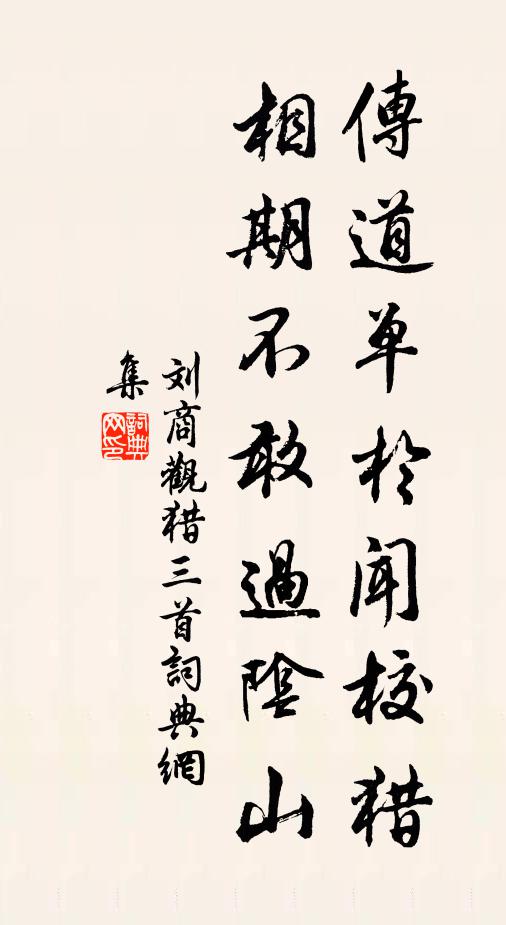 傳道單於聞校猎
相期不敢過陰山
刘商觀猎三首詞典網
集
詞典
网印